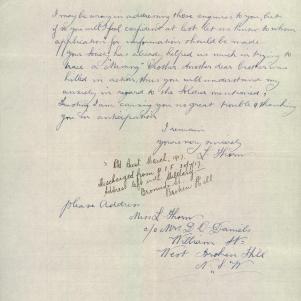 I may be wrong in addressing these enquiries to you, but
if so you will feel at last let us know to whom
application for information should be made
Your Society has already helped us much in trying to
trace a "Missing" Brother. Another dear Brother was
killed in action, thus you will understand my
anxiety in regard to the Soldier mentioned.
Trusting I am causing you no great trouble & thanking
you in anticipation
I remain
yours very sincerely
L. Thorn
March, 1917
Discharged from A.I.F.
Address with Military
Broken Hill
please Address
Miss L. Thorn
c/o Mrs D. C. Daniels
William St
West Broken Hill
N.S.W